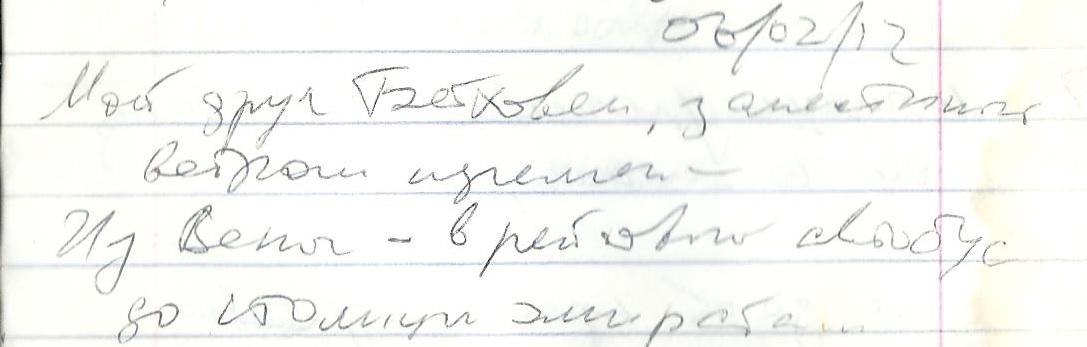 06/02/12
Мой друг Бетховен, занесённый
ветром перемен –
Из Вены – в рейсовый автобус
до столицы эмирата...